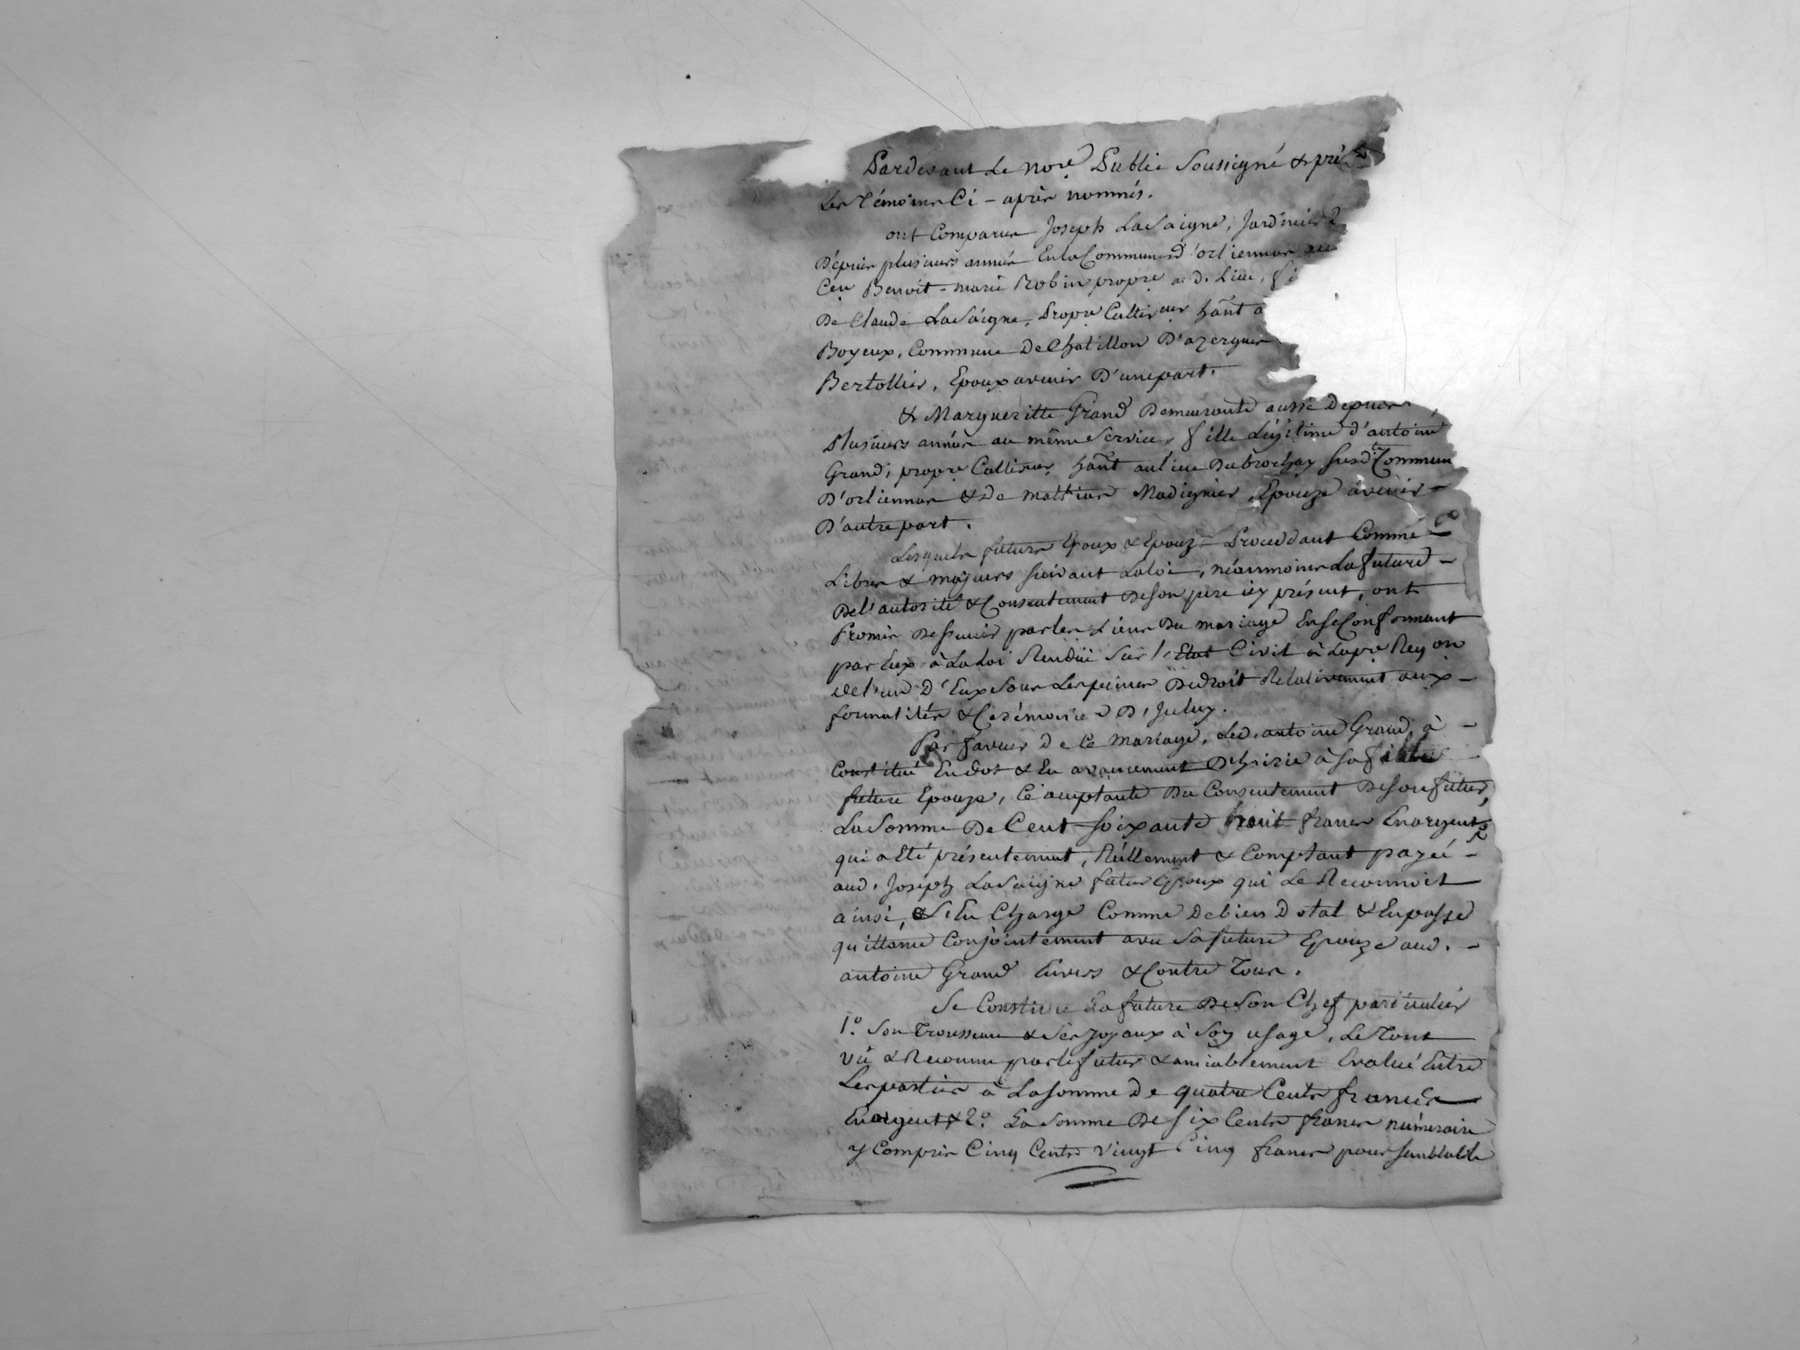 Pardevant Le nore Public Soussigné & pré
Les Témoins Ci-après nommés.
ont Comparus Joseph LaSaigne, Jardinier
Depuis plusieurs année En la Commune d'orliennas au
Cen Benoit-marie Robin propre a d. Lieu, fi
De Claude LaSaigne, Propre Cultiveur hant a
Boyeux, Commune De Chatillon D'azergues
Bertollier, Epoux avenir D'une part.
& Margueritte Grand Demeurante aussi Depuis
Plusieurs année au même Service, fille Légitime d'antoine
Grand, propre Cultiveur, hant au lieu Dubrochay susdte Commun
D'orliennas & de Madignier, Epouze avenir
D'autre part.
Lesquels futurs Epoux & Epouze Procedant Comme
Libres & majeurs suivant La loi, néanmoins La future
De l'autorité & Consentement De son pere icy présent, ont
Promis De s'unir par les Liens Du mariage En se Conformant
par Eux à La Loi Rendüe sur l'Etat Civil à La pre Reqon
de l'un D'Eux Sous Les peines De droit Relativement aux
formalités & Cerémonie D'
Par faveur De Ce mariage, Led. antoine Grand, à
Constitué En dot & En avancement D'hoirie à sa fille
future Epouze, Ce acceptante Du Consentement De son futur,
La Somme De Cent soixante huit francs En argent
qui a Eté présentement, Réellement & Comptant payée
aud. Joseph LaSaigne futur Epoux qui Le Reconnoit
ainsi, & S'En Charge Comme De bien Dotal & En passe
quittance Conjointement avec Sa future Epouze aud.
antoine Grand Envers & Contre Tous.
Se Constitue La future De Son Chef particulier
1.° Son Trousseau & Ses Joyaux à Son usage, Le Tout
Vü & Reconnu par le futur & amiablement Evalué Entre
Les parties à La Somme De quatre Cents francs
En argent & 2.° La Somme De Six Cents francs numéraire
y Compris Cinq Cents Vingt Cinq francs pour semblable